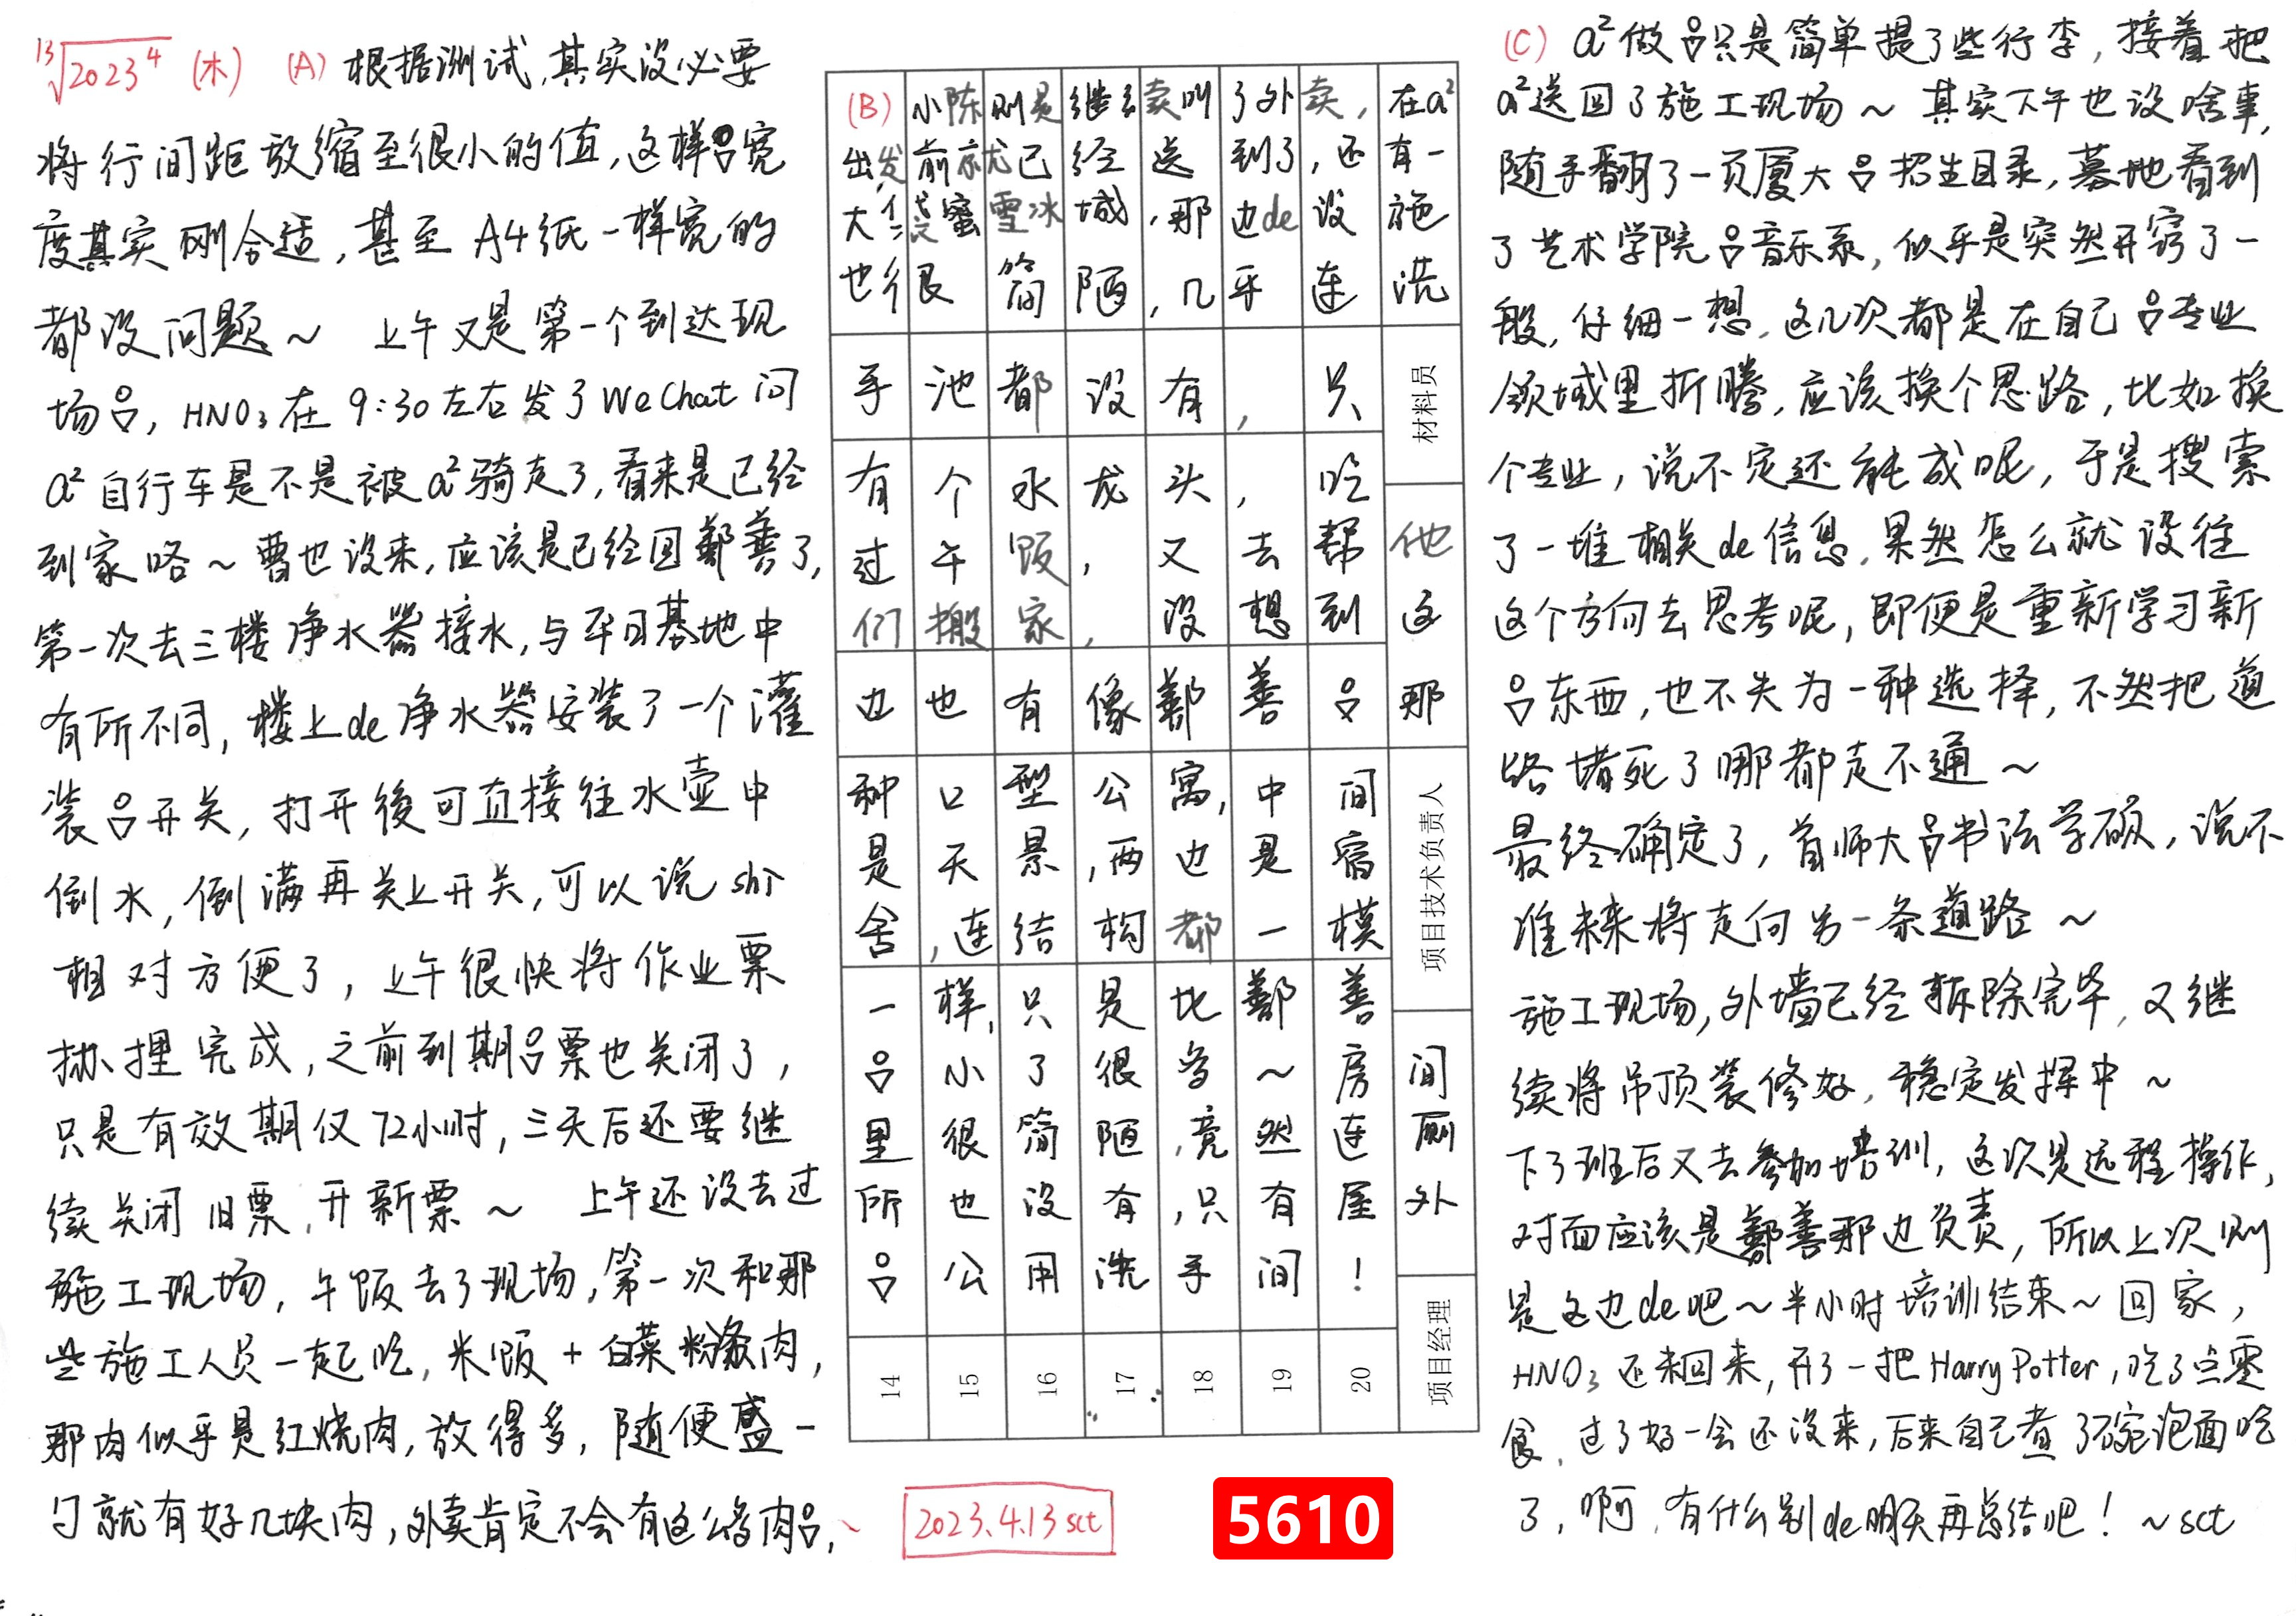 ¹³√2023⁴ (木) (A) 根据测试,其实没必要
将行间距放缩至很小的值,这样吕宽
度其实刚合适,甚至A4纸一样宽的
都没问题~ 上午又是第一个到达现
场吕,HNO₃在9:30左右发了WeChat问
a²自行车是不是被a²骑走了,看来是已经
到家咯~曹也没来,应该是已经回鄯善了,
第一次去三楼净水器接水,与平日基地中
有所不同,楼上de净水器安装了一个灌
装吕开关,打开後可直接往水壶中
倒水,倒满再关上开关,可以说shi
相对方便了,上午很快将作业票
办理完成,之前到期吕票也关闭了,
只是有效期仅72小时,三天后还要继
续关闭旧票,开新票~ 上午还没去过
施工现场,午饭去了现场,第一次和那
些施工人员一起吃,米饭+白菜粉条肉,
那肉似乎是红烧肉,放得多,随便盛一
勺就有好几块肉,外卖肯定不会有这么多肉吕,~
(B) 小陈刚是继续卖叫了外卖,在a²
出发前就已经送到了,还有一
大袋蜜雪冰城,那边de设施
也很简陋,几乎连洗
手池都没有,只
有个水龙头,吃
过午饭,又去帮他
们搬家,没想到这
边也有像鄯善吕那
种口型公寓,中间
是天景,两边是宿
舍,连结构都一模
一样,只是比鄯善
吕小了很多~房间
里很简陋,竟然连厕
所也没有,只有屋外
吕公用洗手间!
材料员
项目技术负责人
项目经理
14 15 16 17 18 19 20
2023.4.13 sct
5610
(C) a²做吕只是简单提了些行李,接着把
a²送回了施工现场~ 其实下午也没啥事,
随手翻了一页厦大吕招生目录,蓦地看到
了艺术学院吕音乐系,似乎是突然开窍了一
般,仔细一想,这几次都是在自己吕专业
领域里折腾,应该换个思路,比如换
个专业,说不定还能成呢,于是搜索
了一堆相关de信息,果然怎么就没往
这个方向去思考呢,即便是重新学习新
吕东西,也不失为一种选择,不然把道
路堵死了哪都走不通~
最终确定了,首师大吕书法学硕,说不
准未来将走向另一条道路~
施工现场,外墙已经拆除完毕,又继
续将吊顶装修好,稳定发挥中~
下了班后又去参加培训,这次是远程操作,
对面应该是鄯善那边负责,所以上次则
是这边de吧~半小时培训结束~回家,
HNO₃还未回来,开了一把Harry Potter,吃了点零
食,过了好一会还没来,后来自己煮了碗泡面吃
了,啊,有什么别de明天再总结吧!~sct